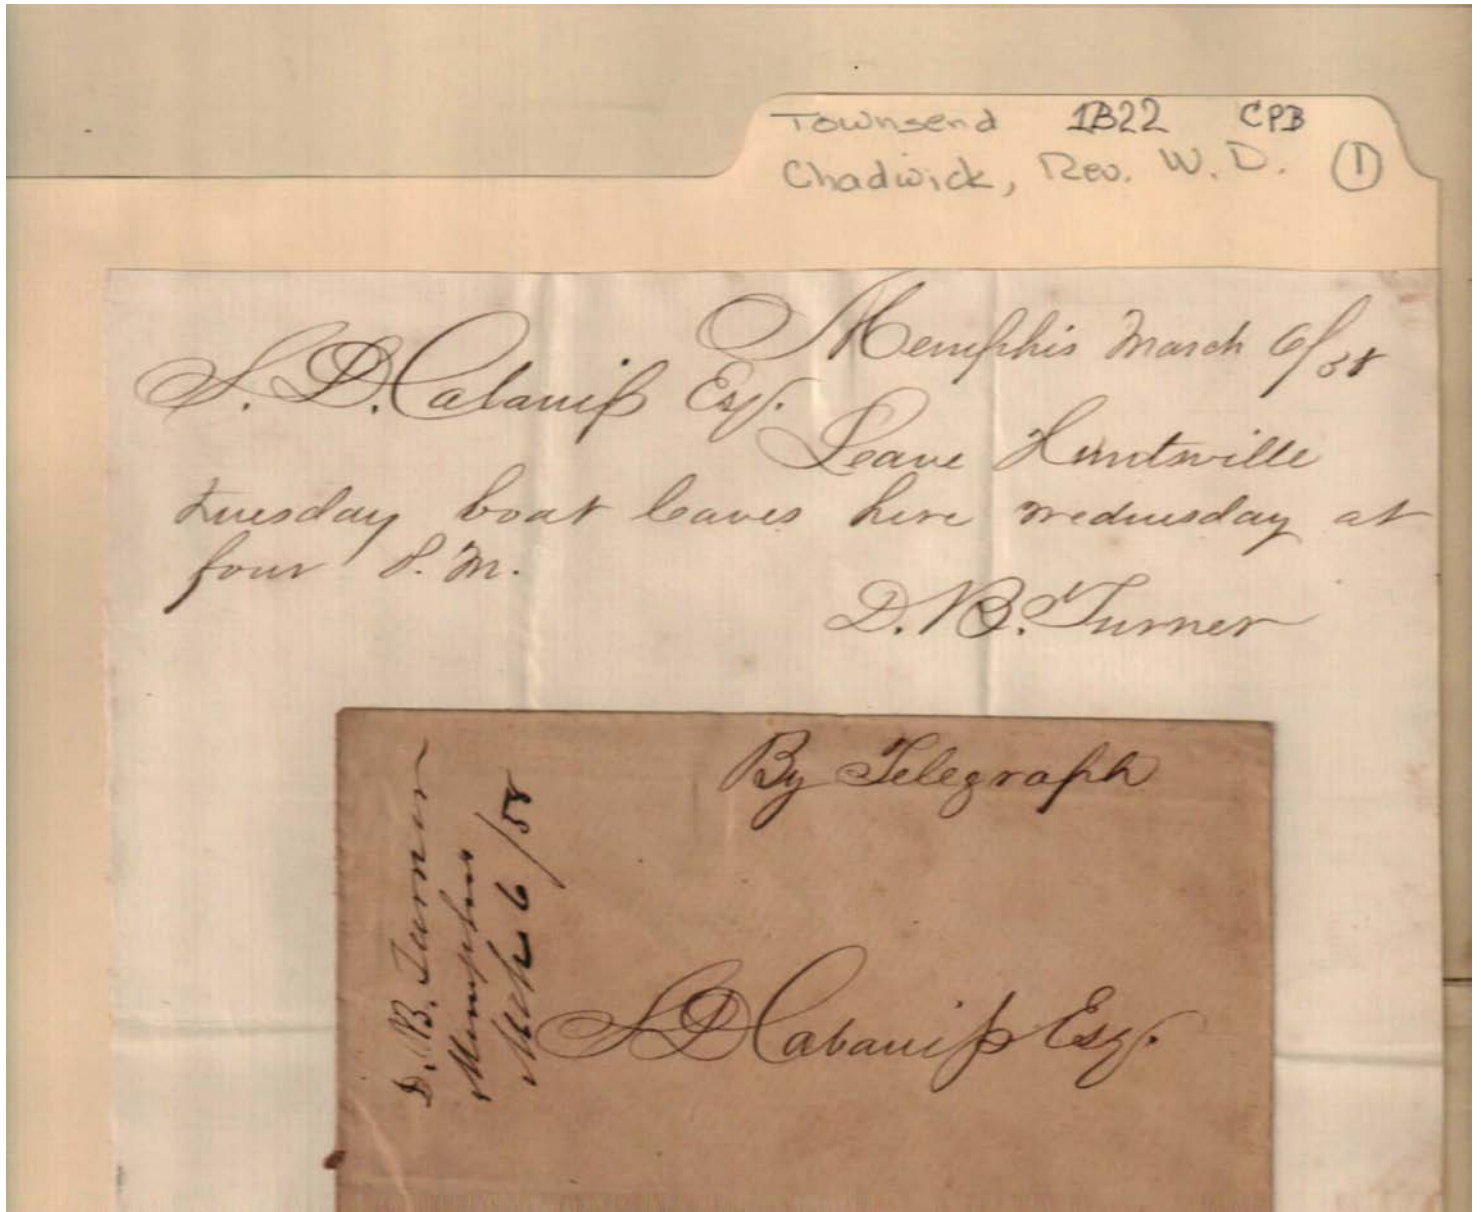 Townsend 1B22 CPB
Chadwick, Rev. W. D. 1
Memphis March 6/58
S. D. Cabaniss Esq.
Leave Huntsville
tuesday boat leaves here wednesday at
four P. M.
D. B. Turner
By Telegraph
D. B. Turner
Memphis
Mch 6/58
S D Cabaniss Esq.